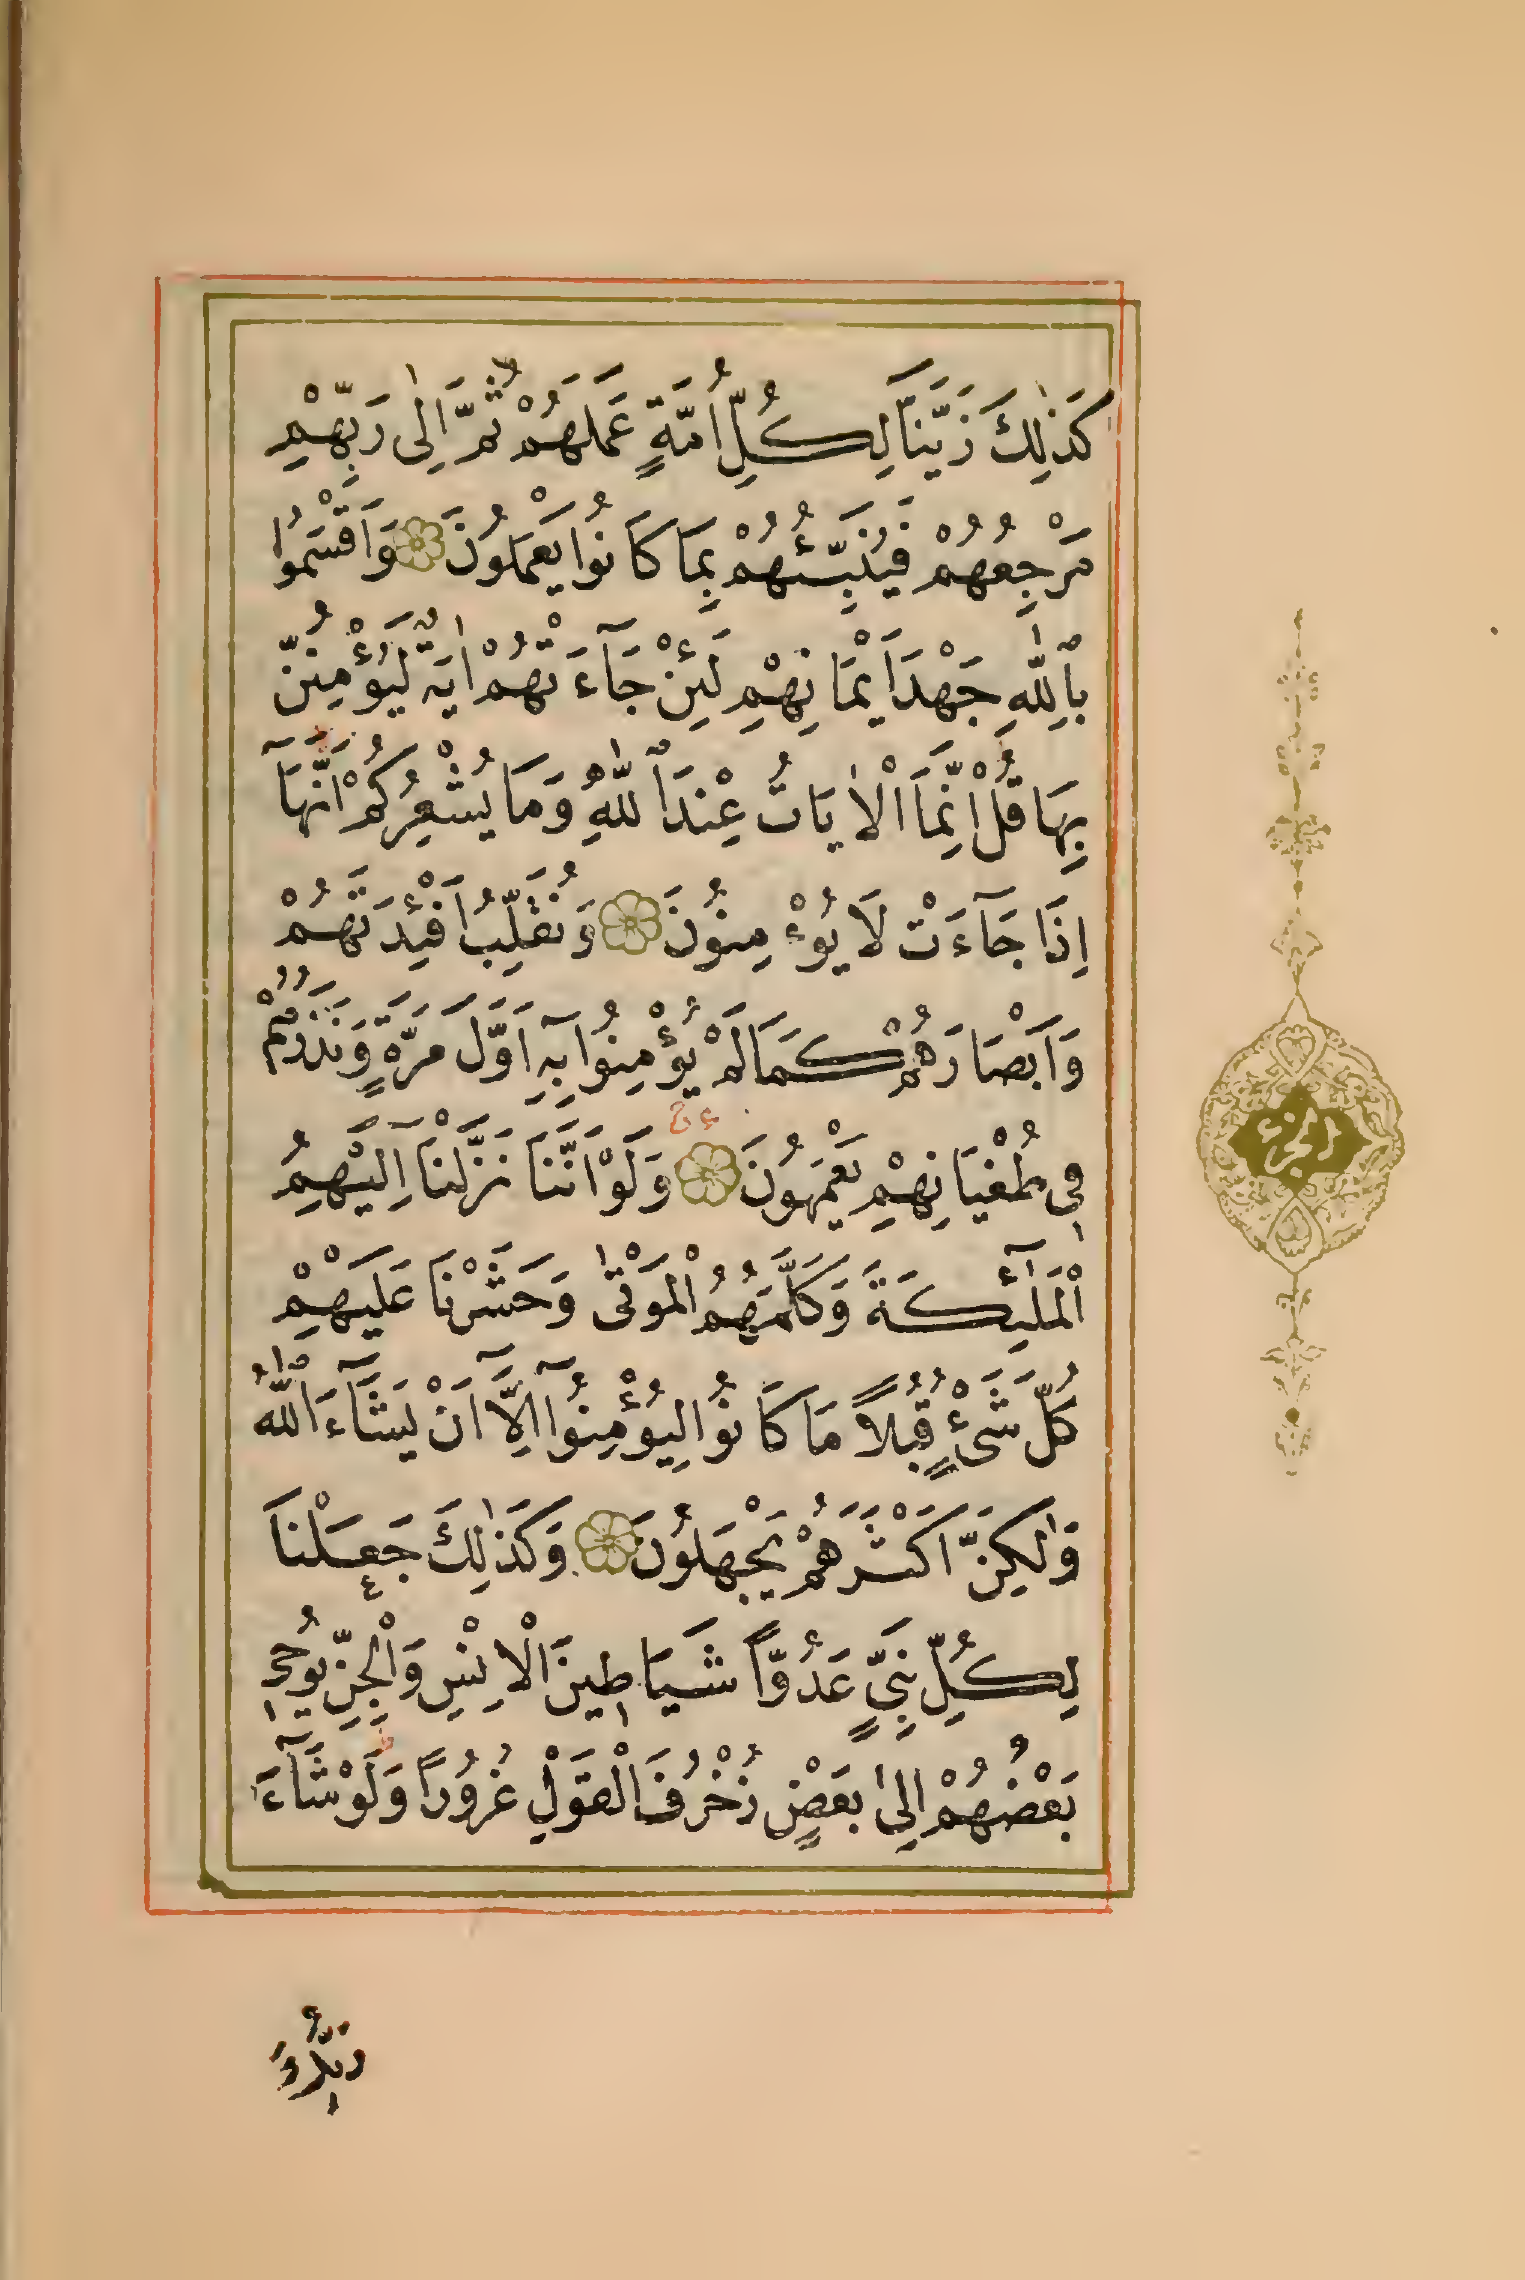 كَذٰلِكَ زَيَّنَّا لِكُلِّ اُمَّةٍ عَمَلَهُمْ ثُمَّ اِلٰى رَبِّهِمْ
مَرْجِعُهُمْ فَيُنَبِّئُهُمْ بِمَا كَانُوا يَعْمَلُونَ وَاَقْسَمُوا
بِاللّٰهِ جَهْدَ اَيْمَانِهِمْ لَئِنْ جَآءَتْهُمْ اٰيَةٌ لَيُؤْمِنُنَّ
بِهَا قُلْ اِنَّمَا الْاٰيَاتُ عِنْدَ اللّٰهِ وَمَا يُشْعِرُكُمْ اَنَّهَآ
اِذَا جَآءَتْ لَا يُؤْمِنُونَ وَنُقَلِّبُ اَفْـِٔدَتَهُمْ
وَاَبْصَارَهُمْ كَمَا لَمْ يُؤْمِنُوا بِهِ اَوَّلَ مَرَّةٍ وَنَذَرُهُمْ
فِى طُغْيَانِهِمْ يَعْمَهُونَ وَلَوْ اَنَّنَا نَزَّلْنَا اِلَيْهِمُ
الْمَلٰٓئِكَةَ وَكَلَّمَهُمُ الْمَوْتٰى وَحَشَرْنَا عَلَيْهِمْ
كُلَّ شَىْءٍ قُبُلاً مَا كَانُوا لِيُؤْمِنُوٓا اِلَّآ اَنْ يَشَآءَ اللّٰهُ
وَلٰكِنَّ اَكْثَرَهُمْ يَجْهَلُونَ وَكَذٰلِكَ جَعَلْنَا
لِكُلِّ نَبِىٍّ عَدُوًّا شَيَاطِينَ الْاِنْسِ وَالْجِنِّ يُوحِى
بَعْضُهُمْ اِلٰى بَعْضٍ زُخْرُفَ الْقَوْلِ غُرُورًا وَلَوْ شَآءَ